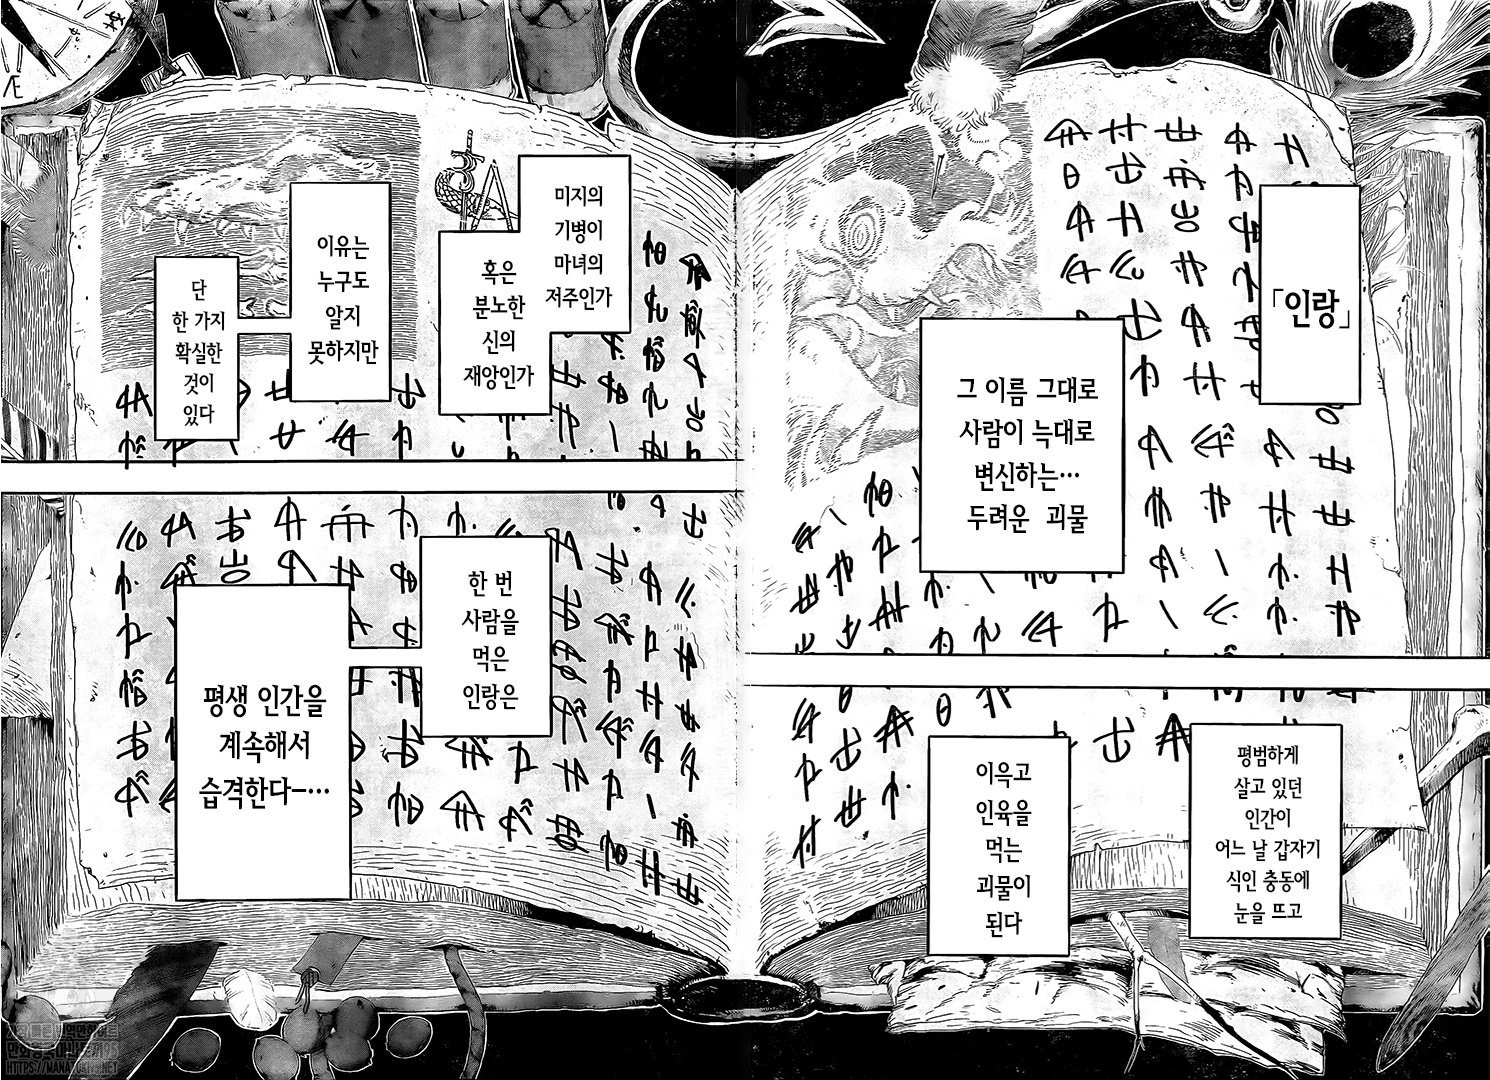 「인랑」
그 이름 그대로
사람이 늑대로
변신하는…
두려운 괴물
평범하게
살고 있던
인간이
어느 날 갑자기
식인 충동에
눈을 뜨고
이윽고
인육을
먹는
괴물이
된다
미지의
기병이
마녀의
저주인가
혹은
분노한
신의
재앙인가
이유는
누구도
알지
못하지만
단
한 가지
확실한
것이
있다
한 번
사람을
먹은
인랑은
평생 인간을
계속해서
습격한다―…